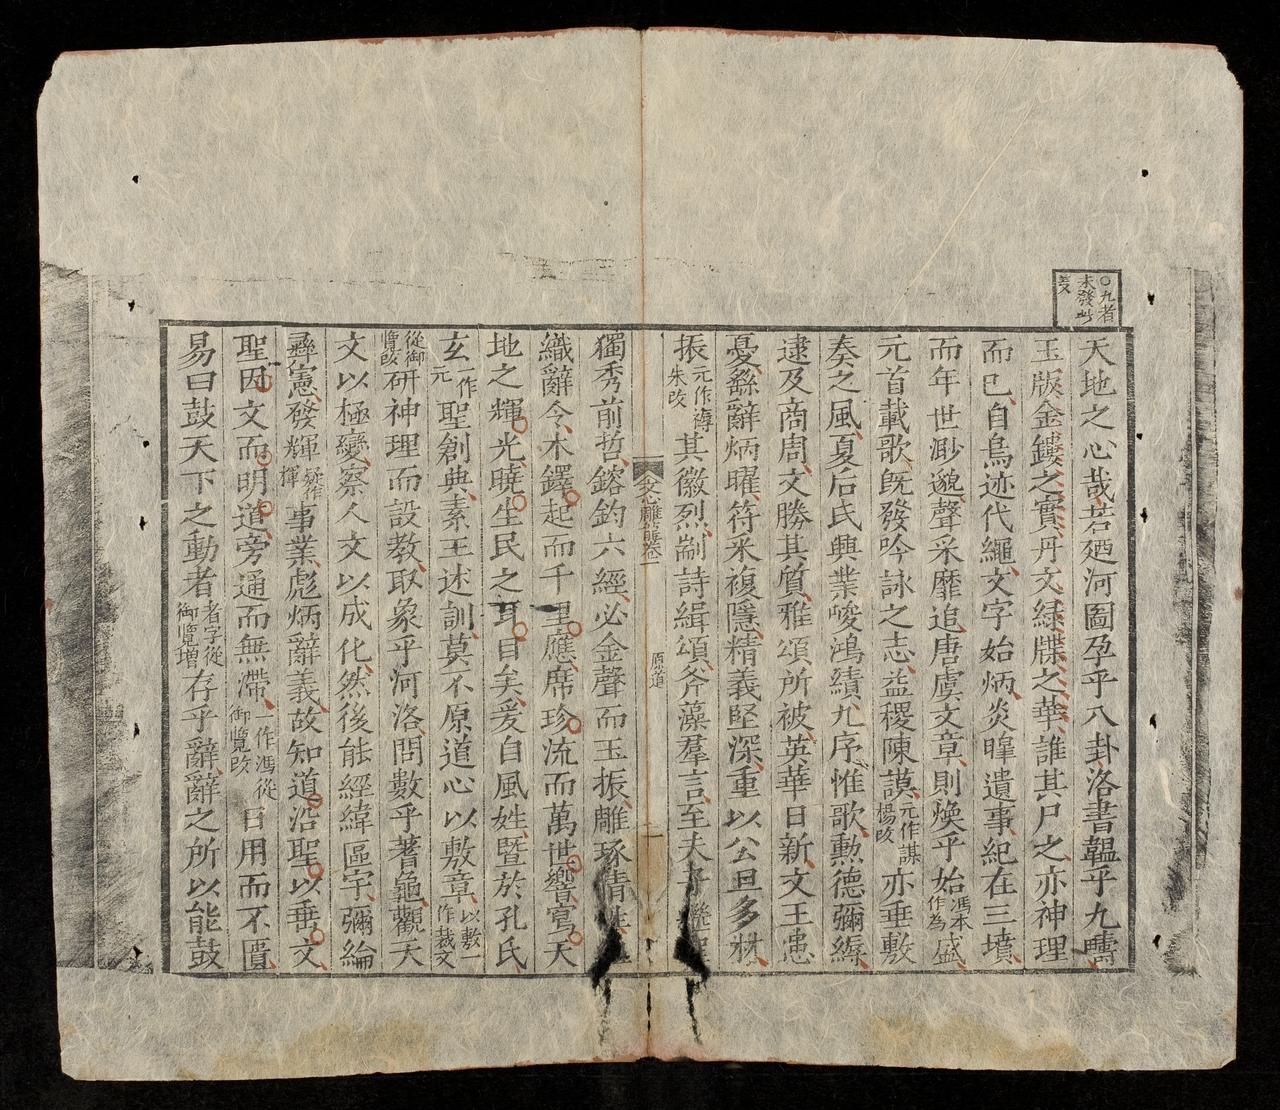 ○九者
未發此
義
天地之心哉若廼河圖孕乎八卦洛書韞乎九疇
玉版金鏤之實丹文綠牒之華誰其尸之亦神理
而已自鳥迹代繩文字始炳炎皥遺事紀在三墳
而年世渺邈聲采靡追唐虞文章則煥乎始馮本作為盛
元首載歌既發吟詠之志益稷陳謨元作謀楊改亦垂敷
奏之風夏后氏興業峻鴻績九序惟歌勲德彌縟
逮及商周文勝其質雅頌所被英華日新文王患
憂繇辭炳曜符采複隱精義堅深重以公旦多材
振元作褥朱改其徽烈剬詩緝頌斧藻羣言至夫子
文心雕龍卷一
原道
一
獨秀前哲鎔鈞六經必金聲而玉振雕琢情
織辭令木鐸起而千里應席珍流而萬世響寫天
地之輝光曉生民之耳目矣爰自風姓暨於孔氏
玄一作元聖創典素王述訓莫不原道心以敷章以敷一作裁文
從御覽改研神理而設教取象乎河洛問數乎蓍龜觀天
文以極變察人文以成化然後能經緯區宇彌綸
彝憲發輝疑作揮事業彪炳辭義故知道沿聖以垂文
聖因文而明道旁通而無滯一作涯從御覽改日用而不匱
易曰鼓天下之動者者字從御覽增存乎辭辭之所以能鼓